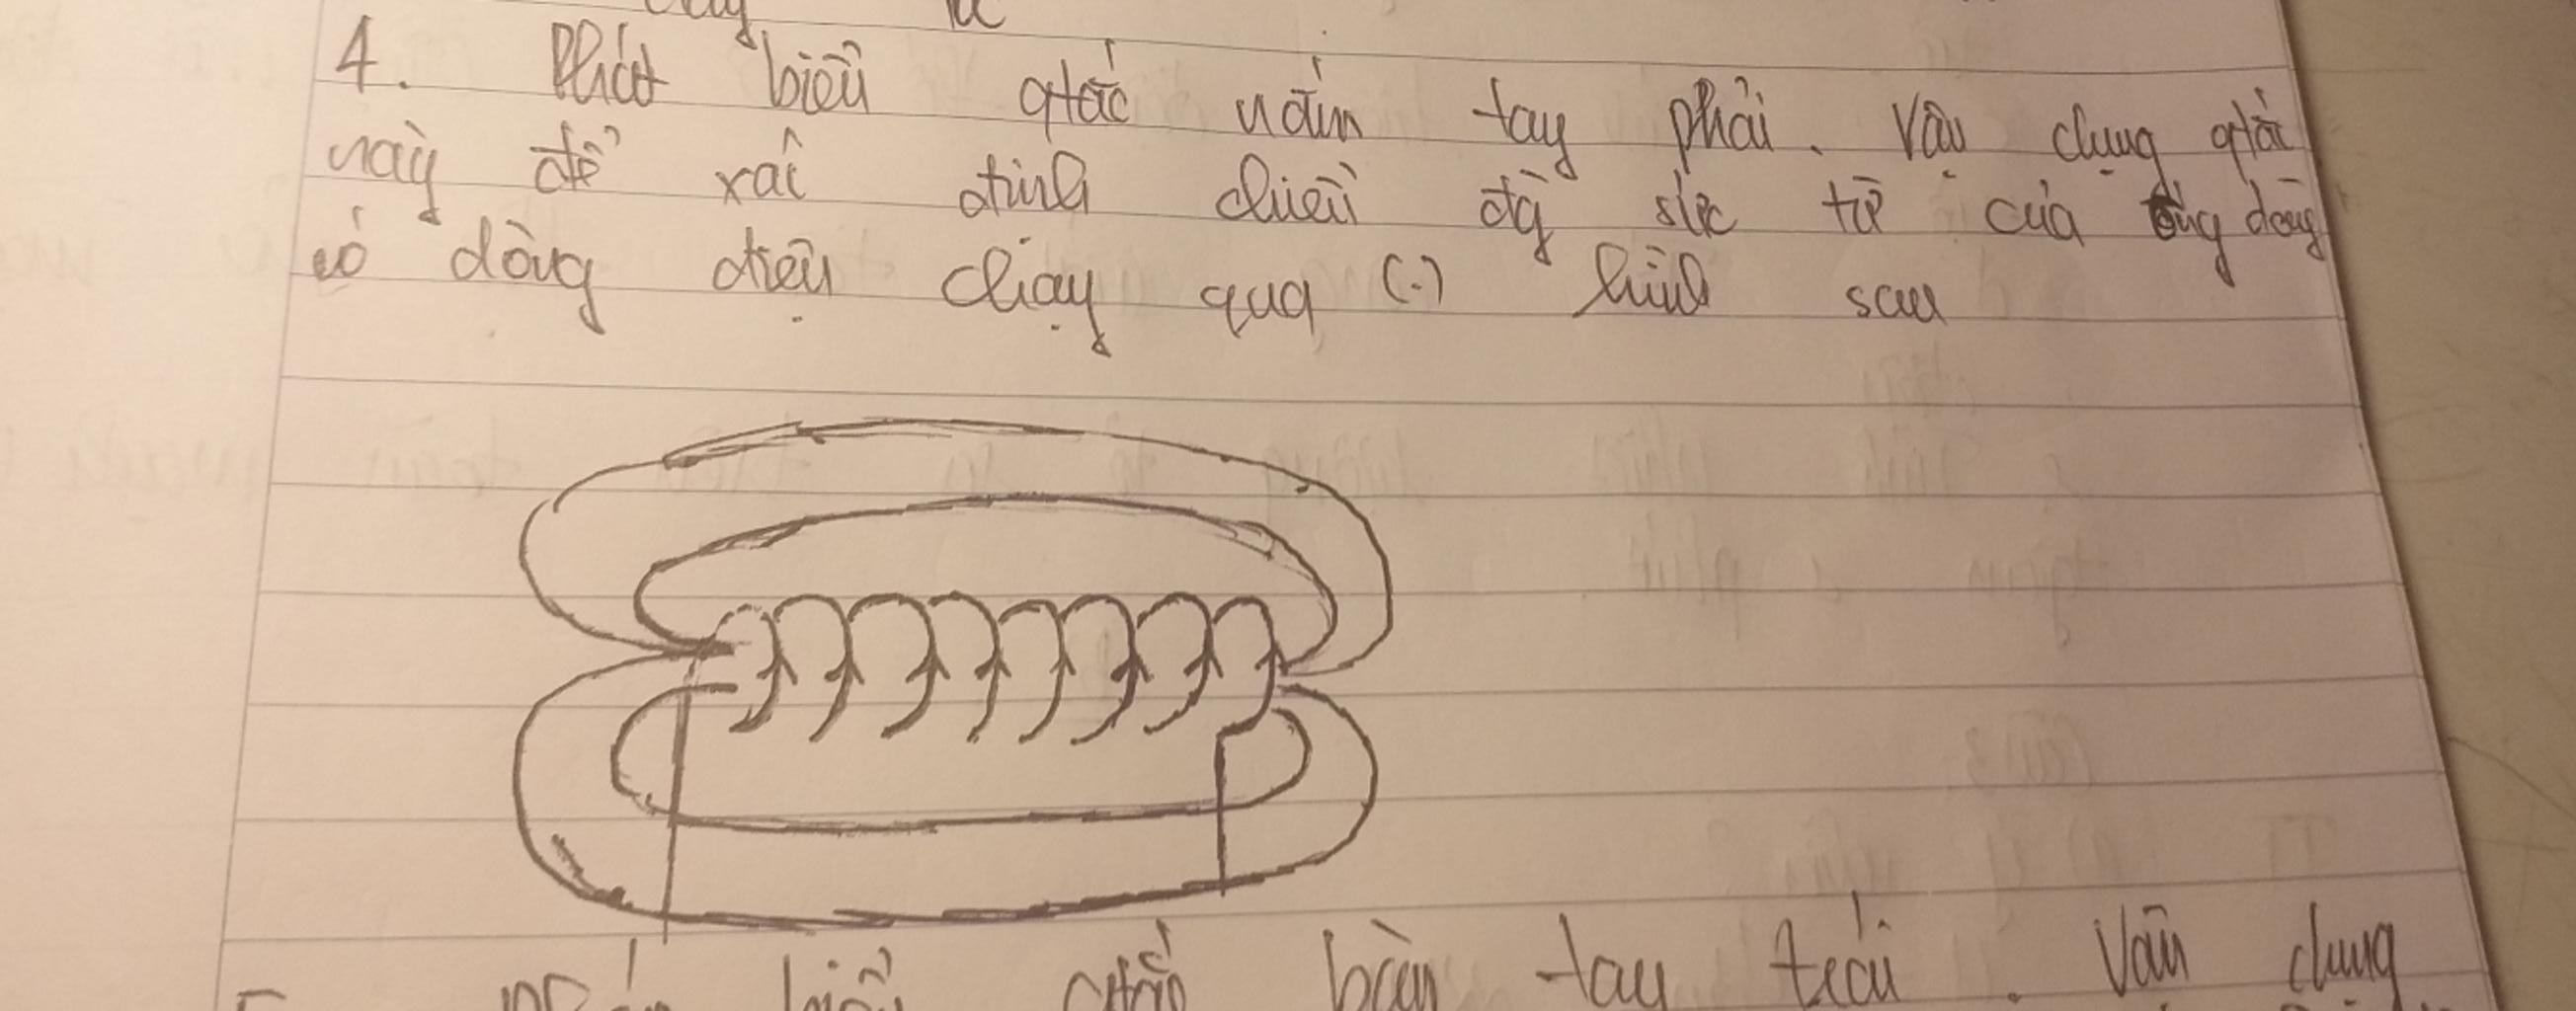 4. Phát biểu qtắc nắm tay phải. Vận dụng qtắc
này để xác định chiều đg sức từ của ống dây
có dòng điện chạy qua (.) hình sau
biểu qtắc bàn tay trái. Vận dụng